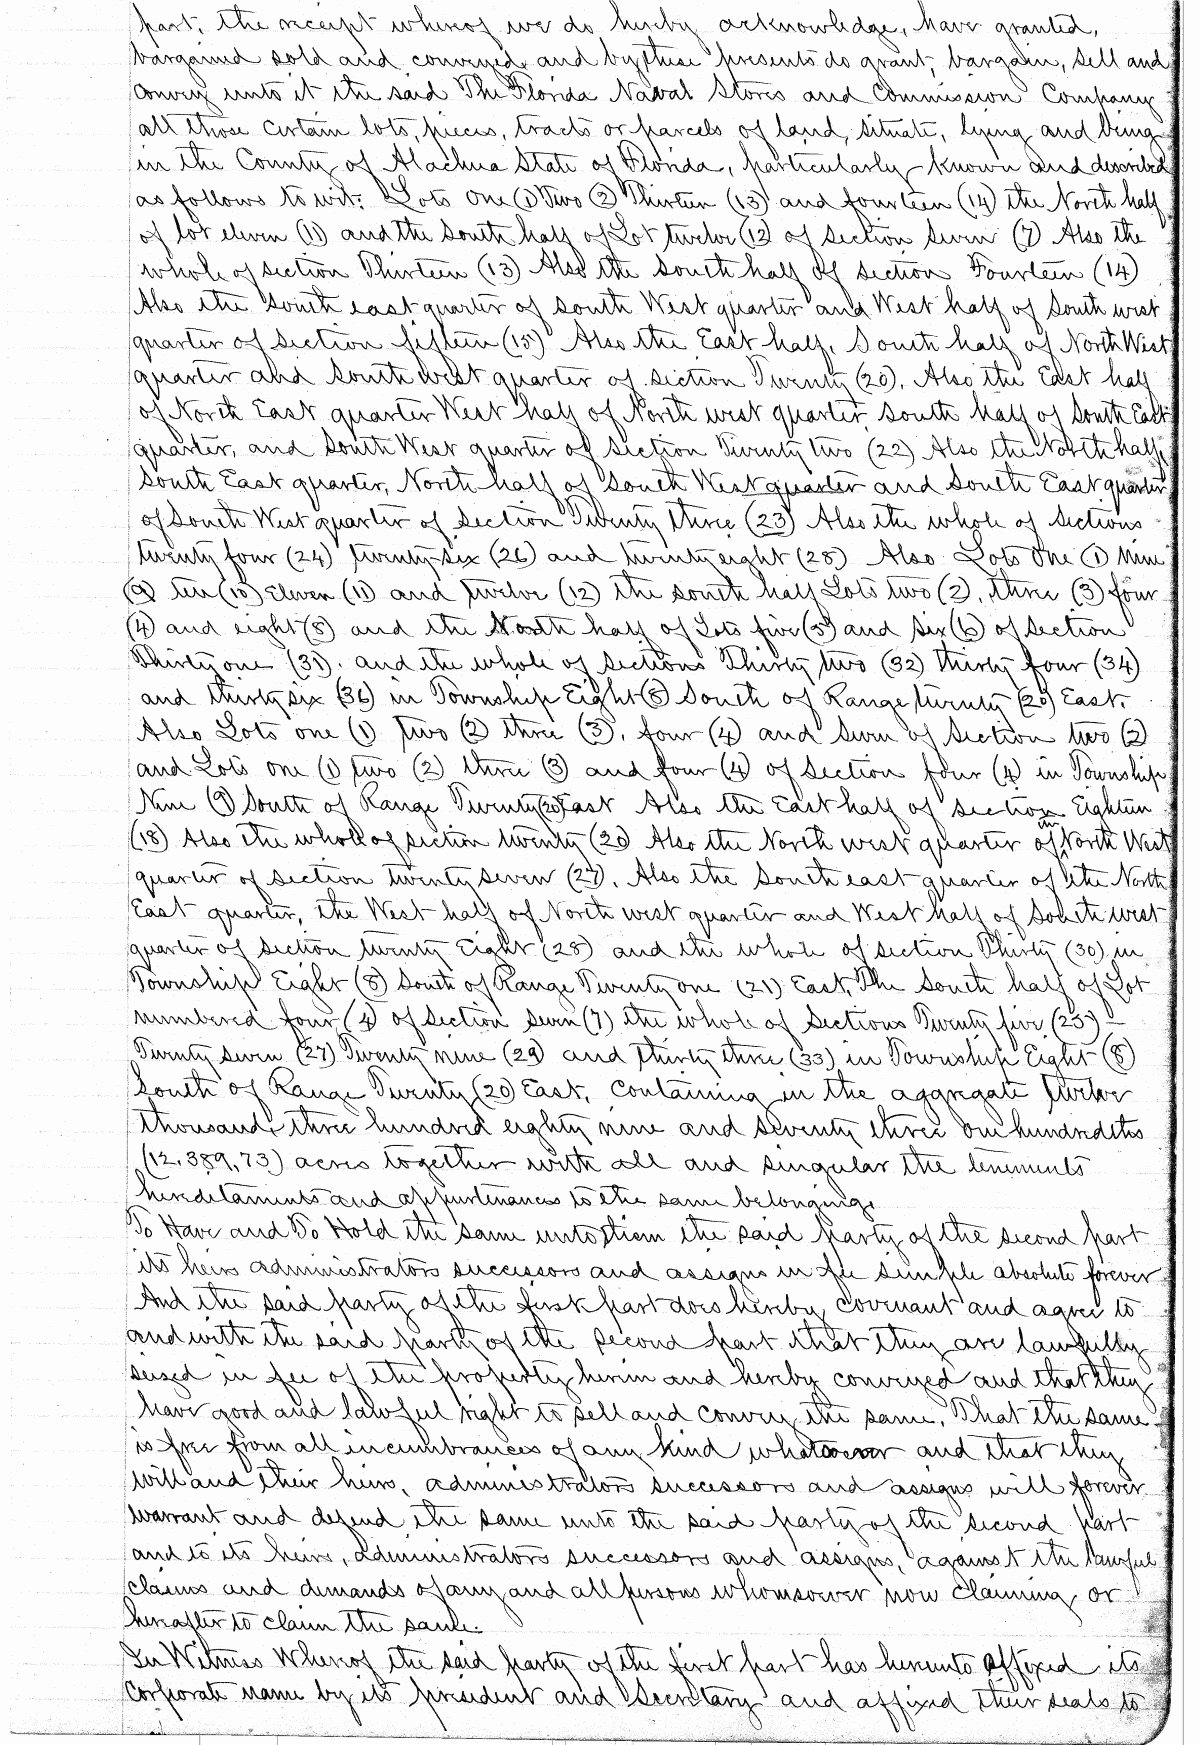 part, the receipt whereof we do hereby acknowledge, have granted,
bargained sold and conveyed and by these presents do grant, bargain, sell and
convey unto it the said The Florida Naval Stores and Commission Company
all those certain lots, pieces, tracts or parcels of land, situate, lying and being
in the County of Alachua State of Florida, particularly known and described
as follows to wit: Lots One (1) Two (2) Thirteen (13) and fourteen (14) the North half
of lot eleven (11) and the South half of Lot twelve (12 of section Seven (7) Also the
whole of section Thirteen (13) Also the South half of section Fourteen (14)
Also the South east quarter of South West quarter and West half of South west
quarter of Section fifteen (15) Also the East half, South half of North West
quarter and South west quarter of section Twenty (20), Also the East half
of North East quarter West half of North west quarter, South half of South East
quarter, and South West quarter of section Twenty two (22) Also the North half,
South East quarter, North half of South West quarter and South East quarter
of South West quarter of section Twenty three (23) Also the whole of Sections
twenty four (24) twenty-six (26) and twenty eight (28) Also Lots One (1) Nine
(9) ten (10) Eleven (11) and twelve (12) the south half Lots two (2), three (3) four
(4) and eight (8) and the North half of Lots five (5) and Six (6) of Section
Thirty one (31). and the whole of sections Thirty two (32) thirty four (34)
and thirty six (36) in Township Eight (8) South of Range twenty (20) East.
Also Lots one (1) two (2) three (3), four (4) and Seven of Section two (2)
and Lots one (1) two (2) three (3) and four (4) of Section four (4) in Township
Nine (9) South of Range Twenty (20) East Also the East half of Section Eighteen
(18) Also the whole of section twenty (20) Also the North west quarter of the North West
quarter of Section twenty seven (27), Also the South east quarter of the North
East quarter, the West half of North west quarter and West half of South west
quarter of section twenty Eight (28) and the whole of section Thirty (30) in
Township Eight (8) South of Range Twenty one (21) East, The South half of Lot
numbered four (4) of Section Seven (7) the whole of Sections Twenty five (25) –
Twenty seven (27) Twenty nine (29) and thirty three (33) in Township Eight (8)
South of Range Twenty (20) East, Containing in the aggregate twelve
thousand, three hundred eighty nine and seventy three one hundredths
(12,389,73) acres together with all and singular the tenements
hereditaments and appurtenances to the same belonging.
To Have and To Hold the same unto them the said party of the second part
its heirs administrators successors and assigns in fee simple absolute forever
And the said party of the first part does hereby covenant and agree to
and with the said party of the second part that they are lawfully
seized in fee of the property herein and hereby conveyed and that they
have good and lawful right to sell and convey the same, That the same
is free from all incumbrances of any kind whatsoever and that they
will and their heirs, administrators successors and assigns will forever
warrant and defend the same unto the said party of the second part
and to its heirs, administrators successors and assigns, against the lawful
claims and demands of any and all persons whomsoever now claiming or
hereafter to claim the same.
In Witness Whereof the said party of the first part has hereunto affixed its
corporate name by its president and Secretary and affixed their seals to